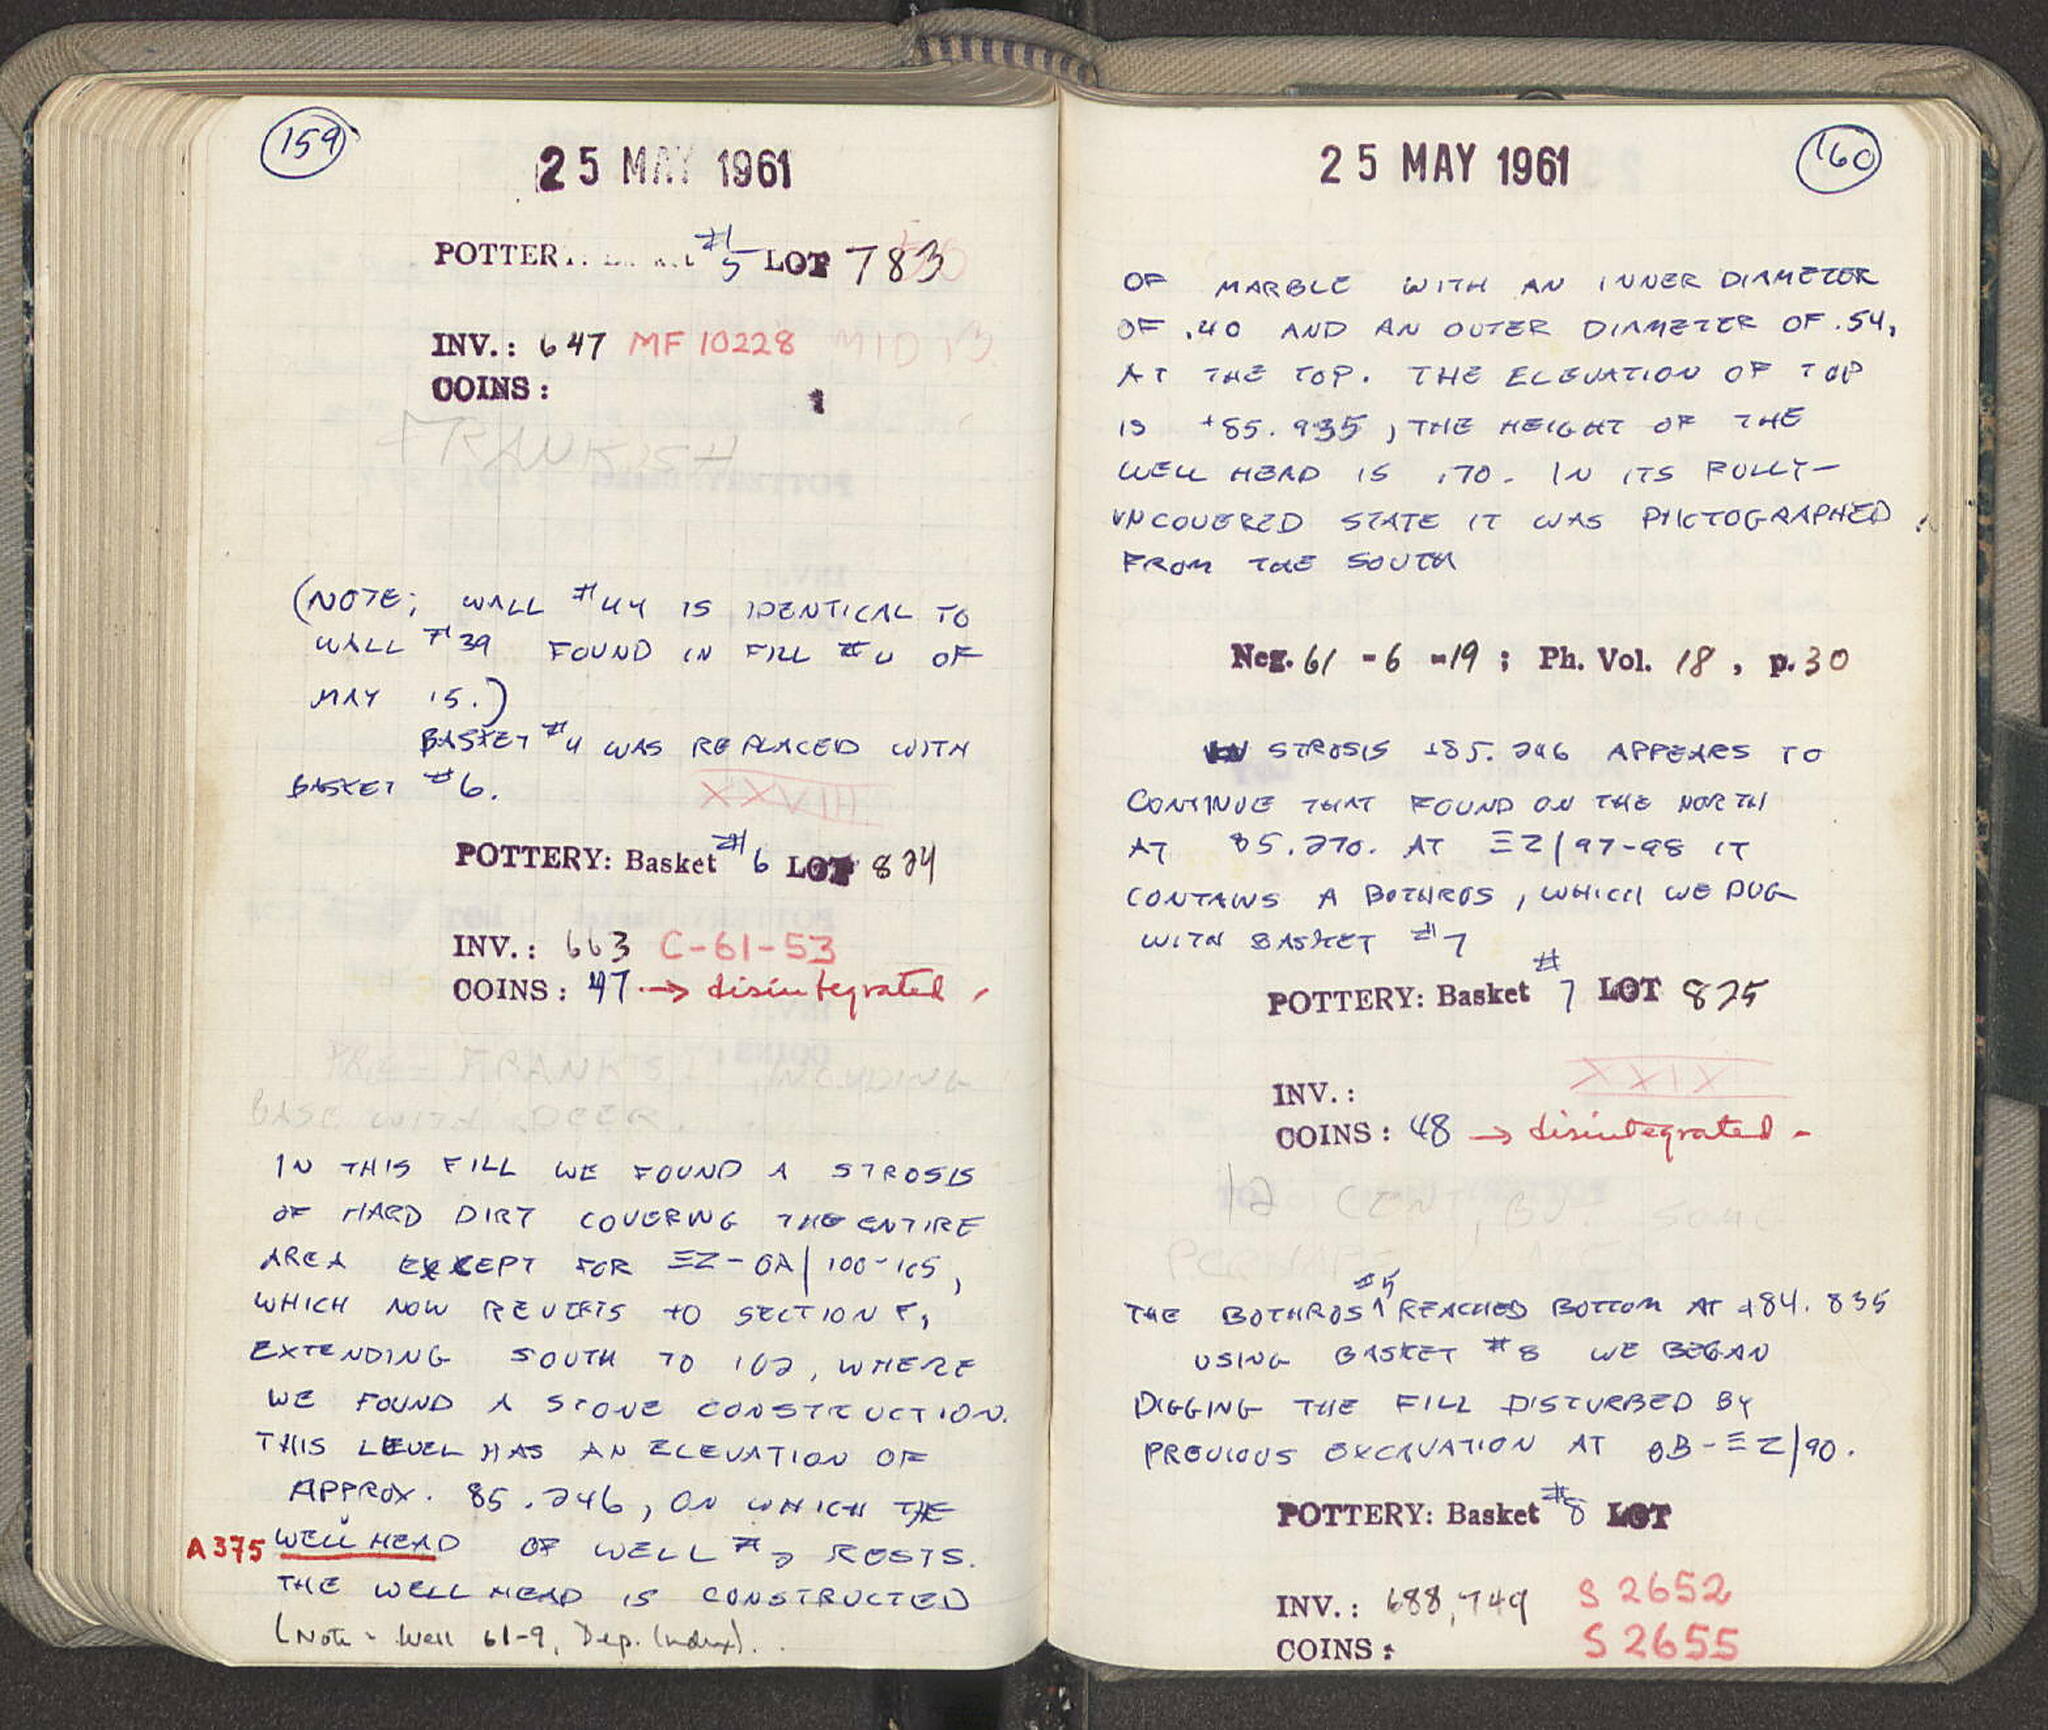 159
25 MAY 1961
POTTER #5 LOT 783
INV.: 647 MF 10228 MID 13
COINS:
FRANKISH
(NOTE; WALL #44 IS IDENTICAL TO
WALL #39 FOUND IN FILL #4 OF
MAY 15.)
BASKET #4 WAS REPLACED WITH
BASKET #6.
XXVIII
POTTERY: Basket #6 LOT 824
INV.: 663 C-61-53
COINS: 47 → disintegrated -
PRE-FRANKISH, INCLUDING
BASE WITH DEER.
IN THIS FILL WE FOUND A STROSIS
OF HARD DIRT COVERING THE ENTIRE
AREA EXCEPT FOR ΞZ-OA/100-105,
WHICH NOW REVERTS TO SECTION F,
EXTENDING SOUTH TO 102, WHERE
WE FOUND A STONE CONSTRUCTION.
THIS LEVEL HAS AN ELEVATION OF
APPROX. 85.246, ON WHICH THE
A375 WELL HEAD OF WELL #2 RESTS.
THE WELL HEAD IS CONSTRUCTED
(Note - Well 61-9, Dep. Index).
160
25 MAY 1961
OF MARBLE WITH AN INNER DIAMETER
OF .40 AND AN OUTER DIAMETER OF .54,
AT THE TOP. THE ELEVATION OF TOP
IS +85.935, THE HEIGHT OF THE
WELL HEAD IS .70. IN ITS FULLY-
UNCOVERED STATE IT WAS PHOTOGRAPHED
FROM THE SOUTH
Neg. 61 - 6 - 19 ; Ph. Vol. 18 , p. 30
STROSIS +85.246 APPEARS TO
CONTINUE THAT FOUND ON THE NORTH
AT 85.270. AT ΞZ/97-98 IT
CONTAINS A BOTHROS, WHICH WE DUG
WITH BASKET #7
POTTERY: Basket #7 LOT 825
XXIX
INV.:
COINS: 48 → disintegrated -
12 CENT, BUT SOME
PERHAPS
THE BOTHROS #5 REACHED BOTTOM AT +84.835
USING BASKET #8 WE BEGAN
DIGGING THE FILL DISTURBED BY
PREVIOUS EXCAVATION AT OB-ΞZ/90.
POTTERY: Basket #8 LOT
INV.: 688, 749 S 2652
COINS: S 2655